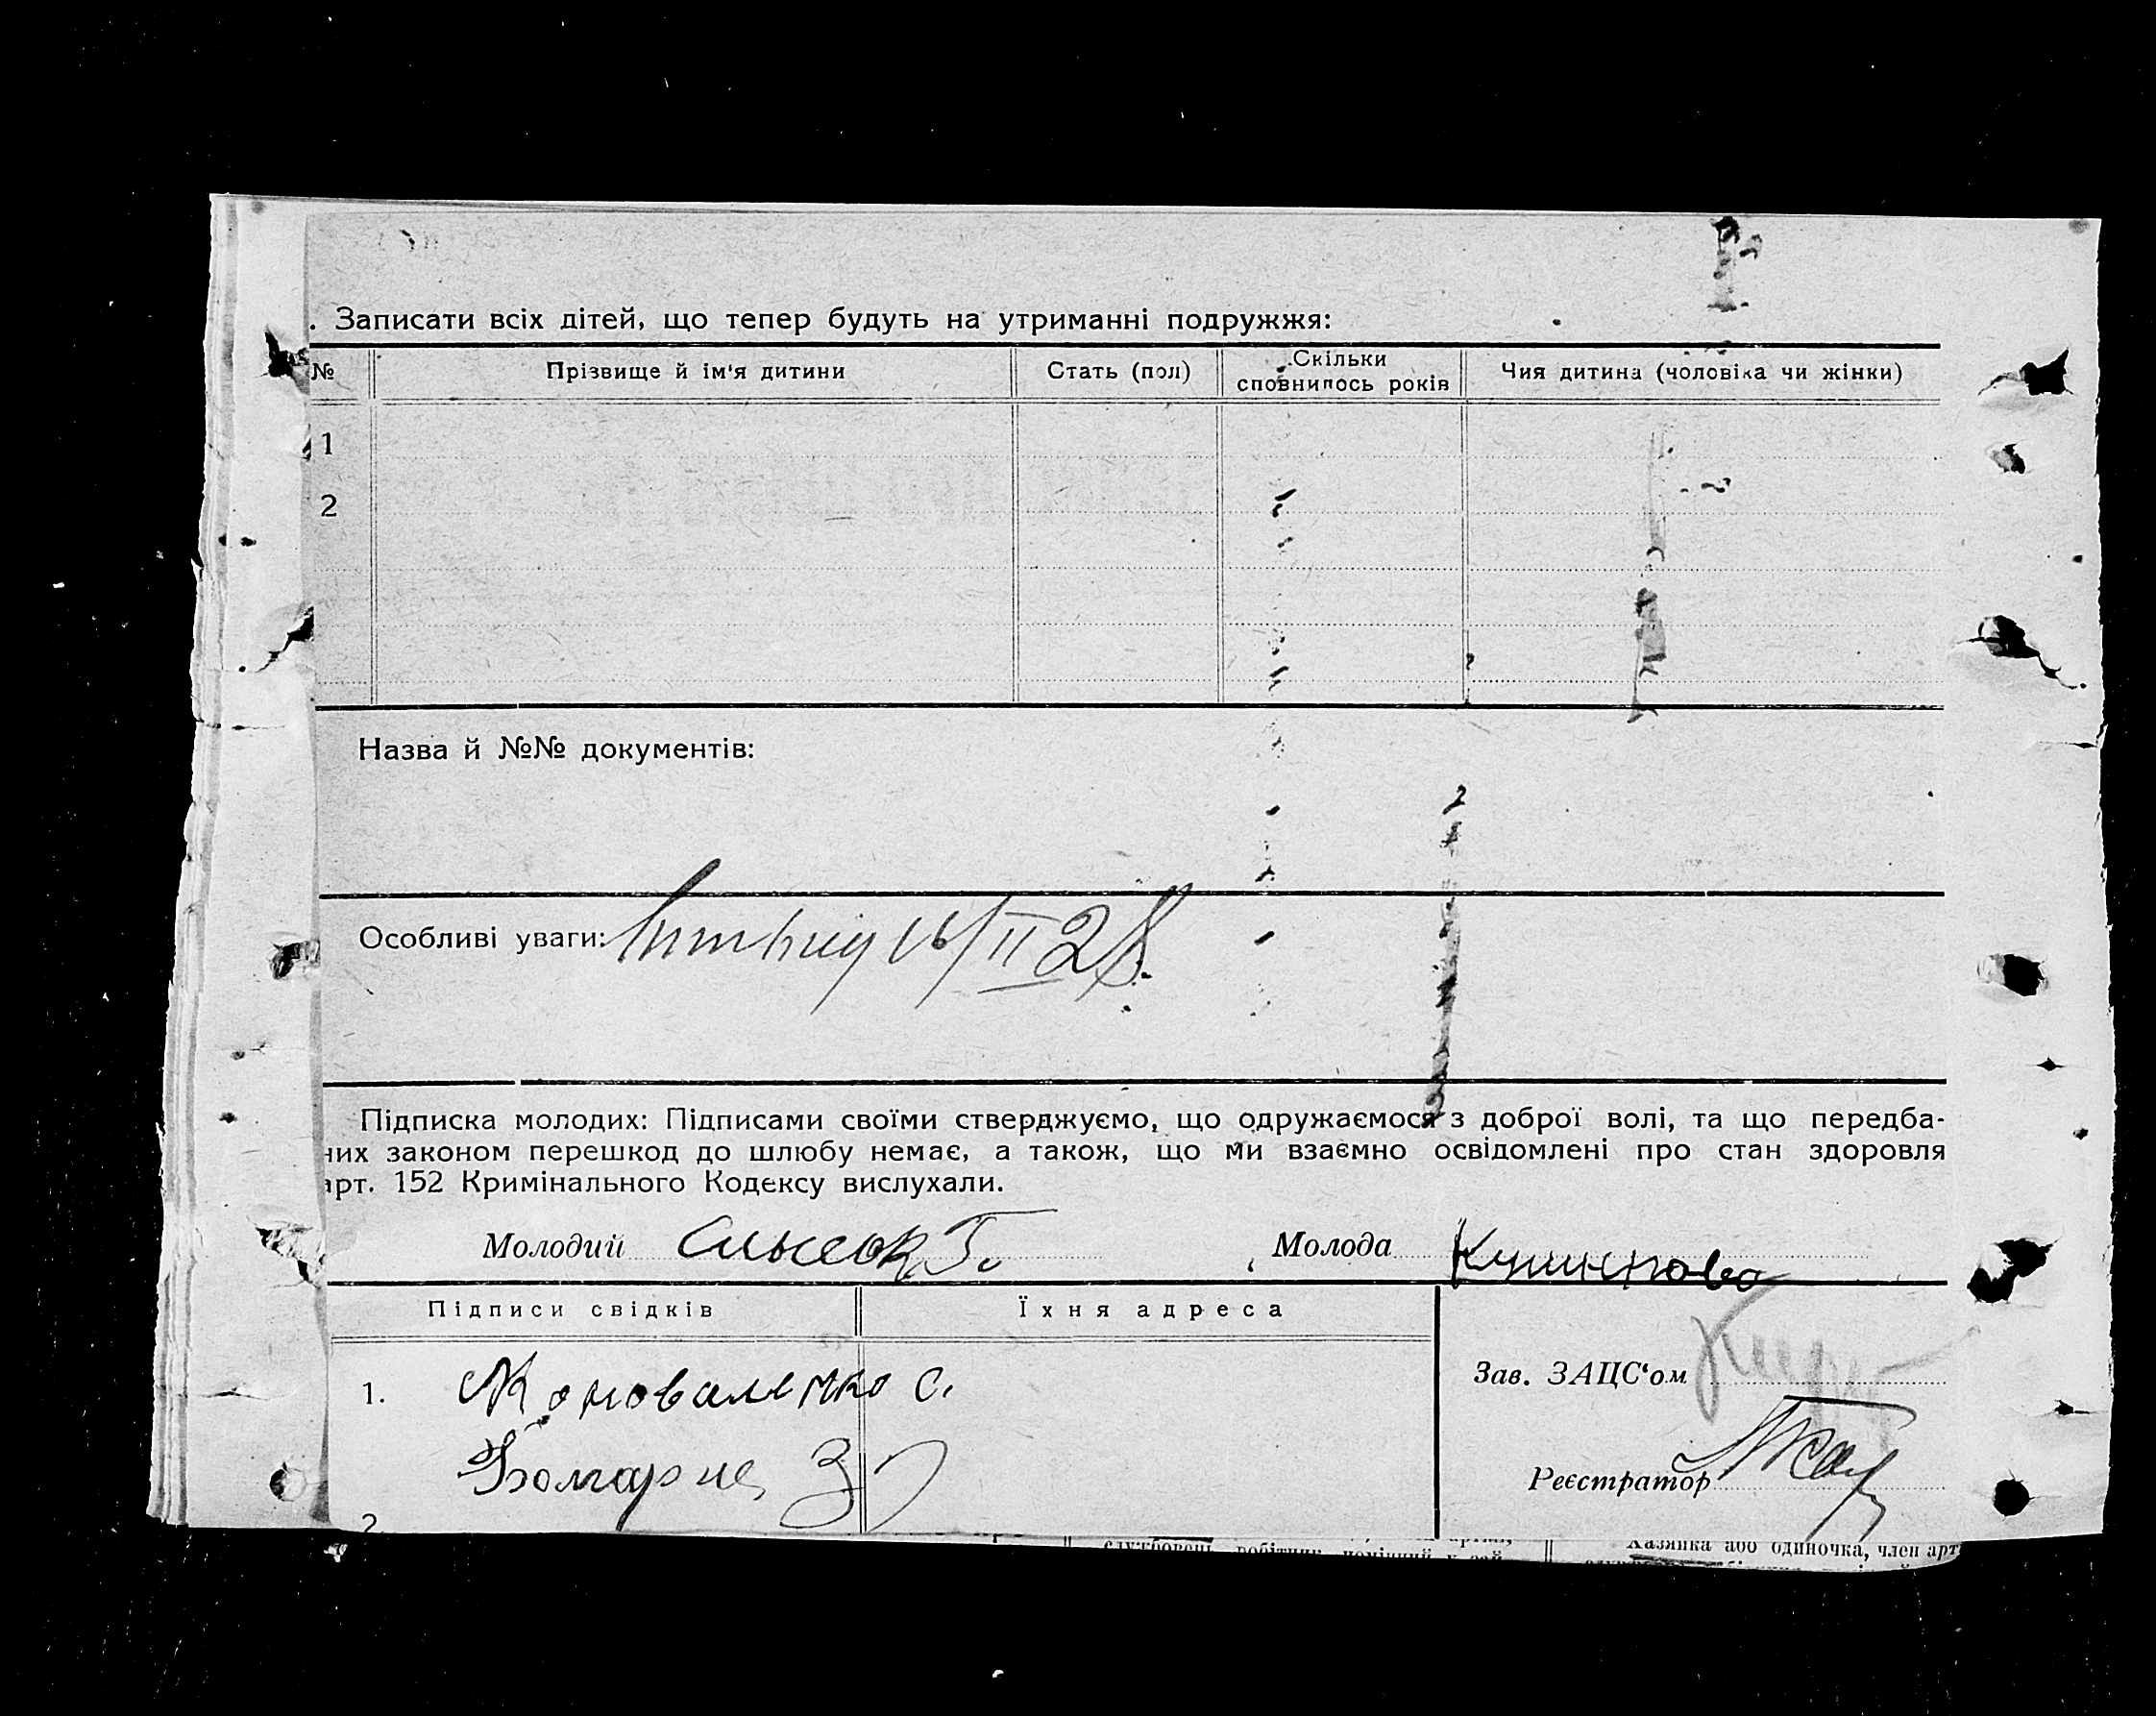 . Записати всіх дітей, що тепер будуть на утриманні подружжя:
№ Прізвище й ім'я дитини Стать (пол) Скільки сповнилось років Чия дитина (чоловіка чи жінки)
1
2
Назва й №№ документів:
Особливі уваги: 16/II 28.
Підписка молодих: Підписами своїми стверджуємо, що одружаємося з доброї волі, та що передба-
них законом перешкод до шлюбу немає, а також, що ми взаємно освідомлені про стан здоровля
арт. 152 Кримінального Кодексу вислухали.
Молодий Молода
Підписи свідків Їхня адреса
Зав. ЗАЦС'ом
1. Коноваленко С.
Реєстратор
Болгарин З
2
Хазяйка або одиночка, член арт